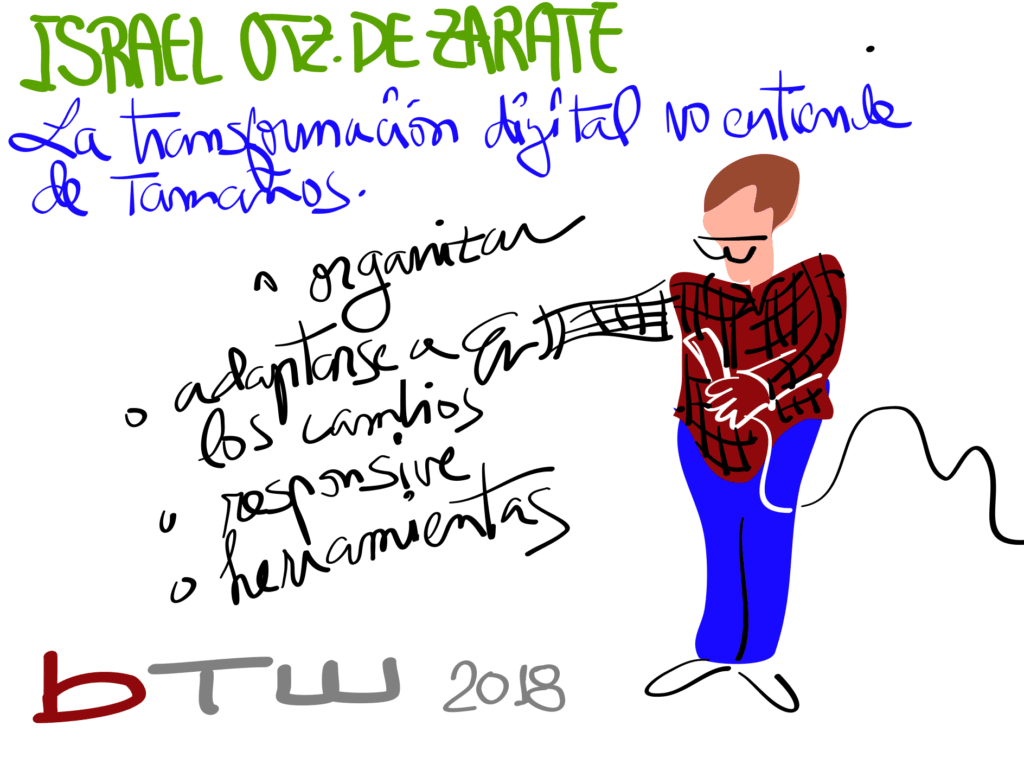 ISRAEL OTZ. DE ZARATE
La transformación digital no entiende
de Tamaños.
organizar
adaptarse a
los cambios
responsive
herramientas
bTW 2018